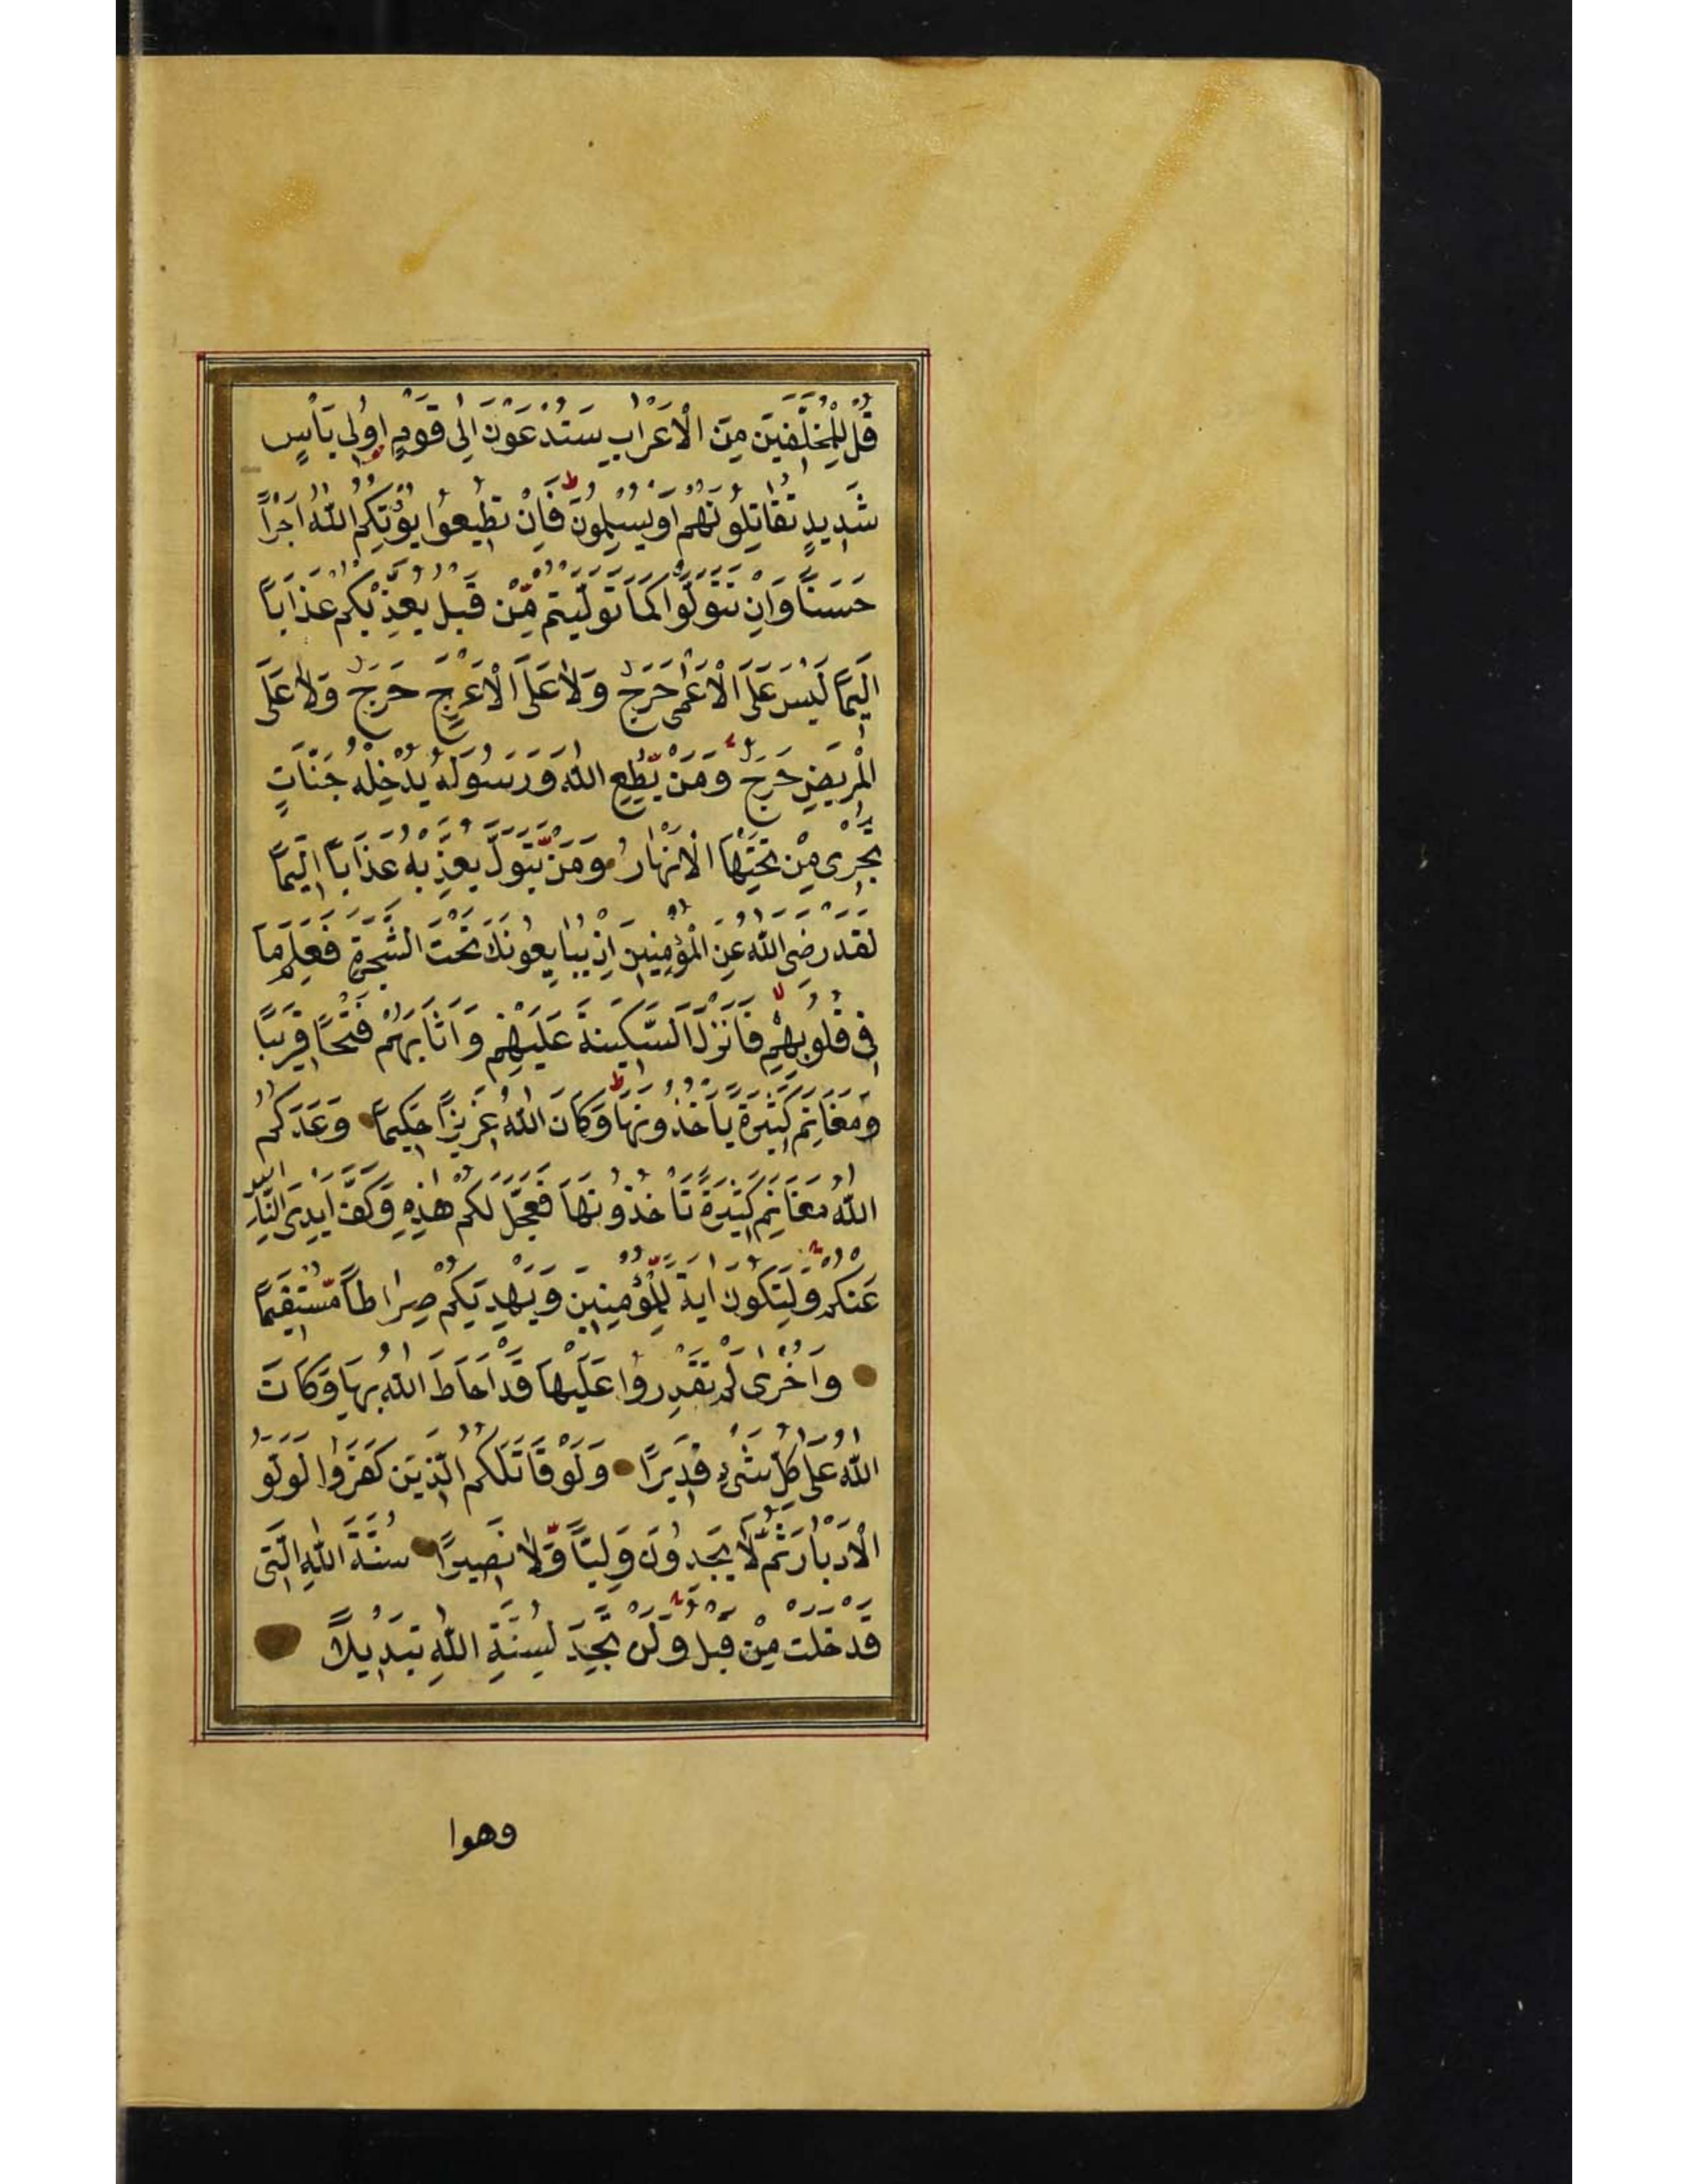 قُلْ لِلْمُخَلَّفِينَ مِنَ الْاَعْرَابِ سَتُدْعَوْنَ اِلٰى قَوْمٍ اُولِى بَأْسٍ
شَدِيدٍ تُقَاتِلُونَهُمْ اَوْ يُسْلِمُونَ فَاِنْ تُطِيعُوا يُؤْتِكُمُ اللّٰهُ اَجْرًا
حَسَنًا وَاِنْ تَتَوَلَّوْا كَمَا تَوَلَّيْتُمْ مِنْ قَبْلُ يُعَذِّبْكُمْ عَذَابًا
اَلِيمًا لَيْسَ عَلَى الْاَعْمٰى حَرَجٌ وَلَا عَلَى الْاَعْرَجِ حَرَجٌ وَلَا عَلَى
الْمَرِيضِ حَرَجٌ وَمَنْ يُطِعِ اللّٰهَ وَرَسُولَهُ يُدْخِلْهُ جَنَّاتٍ
تَجْرِى مِنْ تَحْتِهَا الْاَنْهَارُ وَمَنْ يَتَوَلَّ يُعَذِّبْهُ عَذَابًا اَلِيمًا
لَقَدْ رَضِىَ اللّٰهُ عَنِ الْمُؤْمِنِينَ اِذْ يُبَايِعُونَكَ تَحْتَ الشَّجَرَةِ فَعَلِمَ مَا
فِى قُلُوبِهِمْ فَاَنْزَلَ السَّكِينَةَ عَلَيْهِمْ وَاَثَابَهُمْ فَتْحًا قَرِيبًا
وَمَغَانِمَ كَثِيرَةً يَأْخُذُونَهَا وَكَانَ اللّٰهُ عَزِيزًا حَكِيمًا وَعَدَكُمُ
اللّٰهُ مَغَانِمَ كَثِيرَةً تَأْخُذُونَهَا فَعَجَّلَ لَكُمْ هٰذِهِ وَكَفَّ اَيْدِىَ النَّاسِ
عَنْكُمْ وَلِتَكُونَ اٰيَةً لِلْمُؤْمِنِينَ وَيَهْدِيَكُمْ صِرَاطًا مُسْتَقِيمًا
وَاُخْرٰى لَمْ تَقْدِرُوا عَلَيْهَا قَدْ اَحَاطَ اللّٰهُ بِهَا وَكَانَ
اللّٰهُ عَلٰى كُلِّ شَىْءٍ قَدِيرًا وَلَوْ قَاتَلَكُمُ الَّذِينَ كَفَرُوا لَوَلَّوُ
الْاَدْبَارَ ثُمَّ لَا يَجِدُونَ وَلِيًّا وَلَا نَصِيرًا سُنَّةَ اللّٰهِ الَّتِى
قَدْ خَلَتْ مِنْ قَبْلُ وَلَنْ تَجِدَ لِسُنَّةِ اللّٰهِ تَبْدِيلًا
وهوا